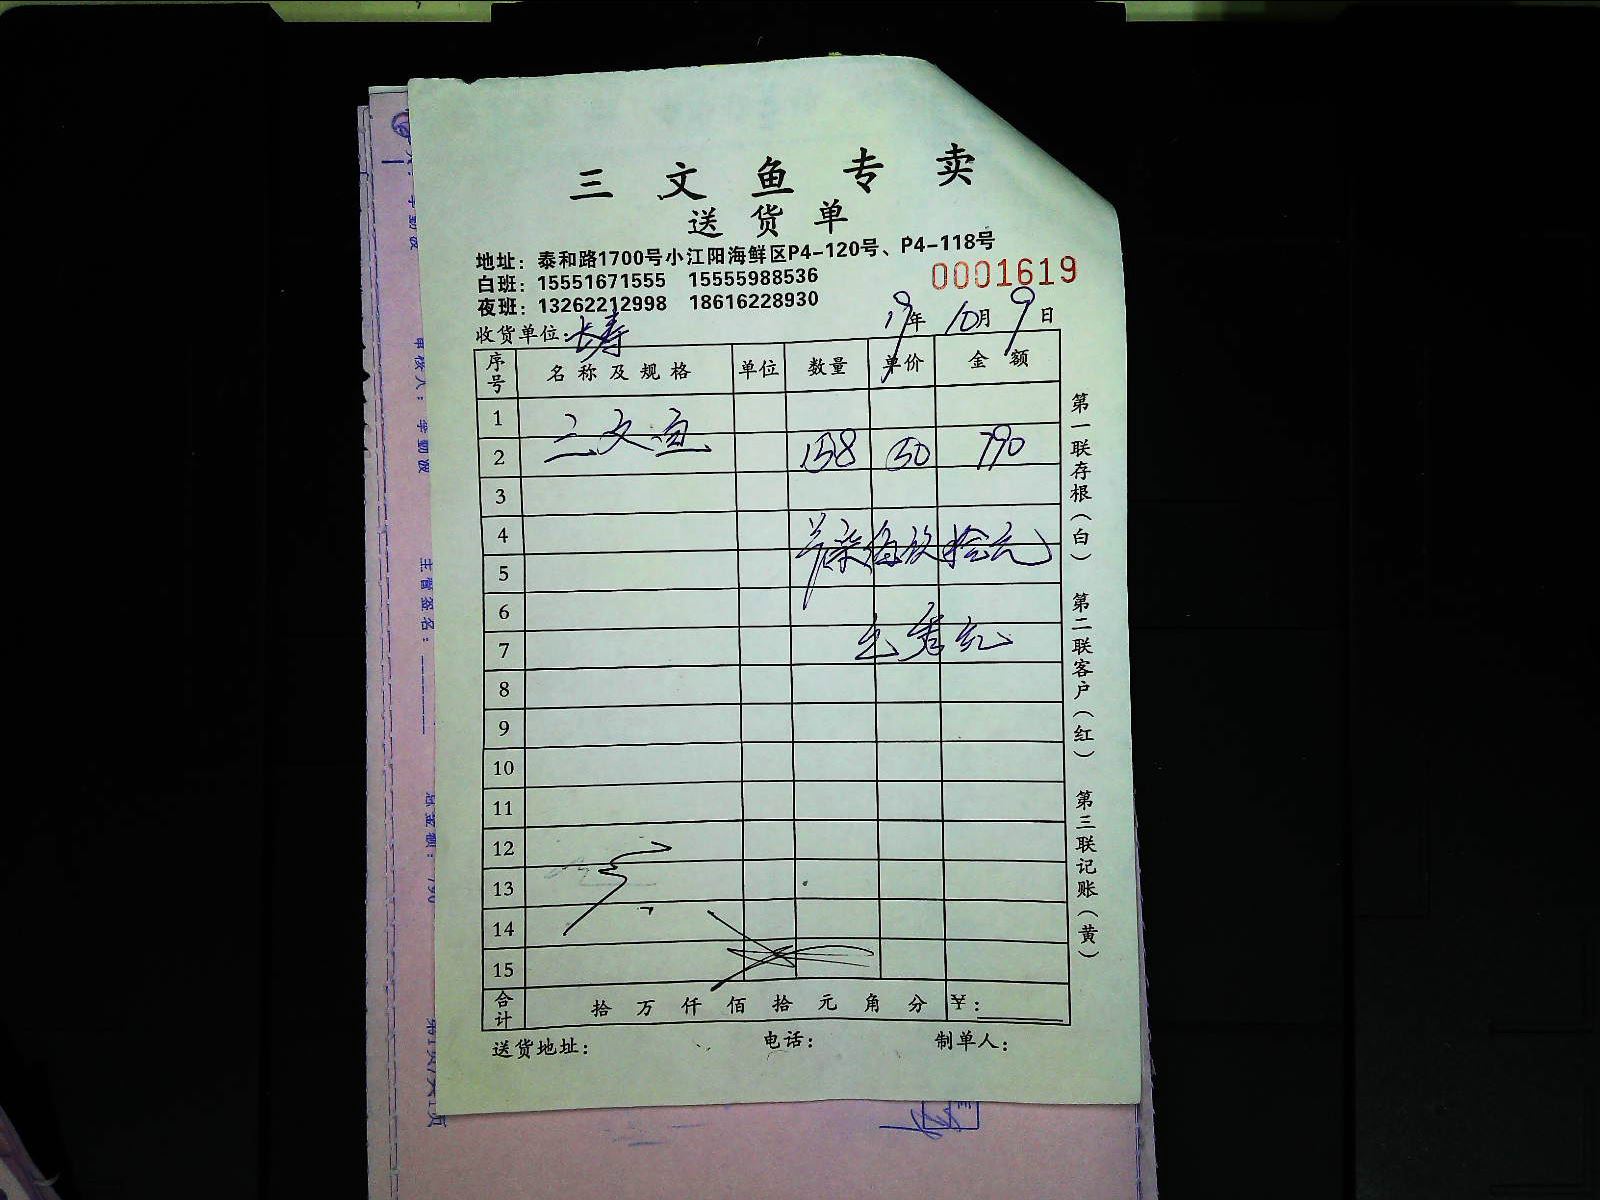 三文鱼专卖
送货单
地址：泰和路1700号小江阳海鲜区P4-120号、P4-118号
白班：15551671555 15555988536
0001619
夜班：13262212998 18616228930
收货单位：长寿
19年10月9日
序号 名称及规格 单位 数量 单价 金额
1
2 三文鱼 158 50 790
3
4
5
柒佰玖拾元
6
7
8
9
10
11
12
13
14
15
合计 拾万仟佰拾元角分 ¥：
送货地址： 电话： 制单人：
第一联存根（白） 第二联客户（红） 第三联记账（黄）
审核人： 李勤俊
主管签名：
总金额：790